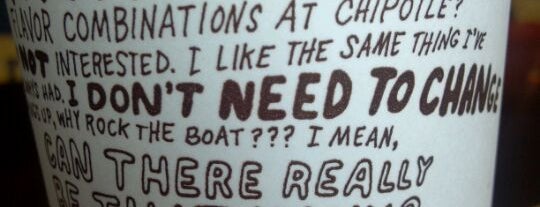 FLAVOR COMBINATIONS AT CHIPOTLE?
NOT INTERESTED. I LIKE THE SAME THING I'VE
HAD. I DON'T NEED TO CHANGE
UP, WHY ROCK THE BOAT??? I MEAN,
CAN THERE REALLY
BE